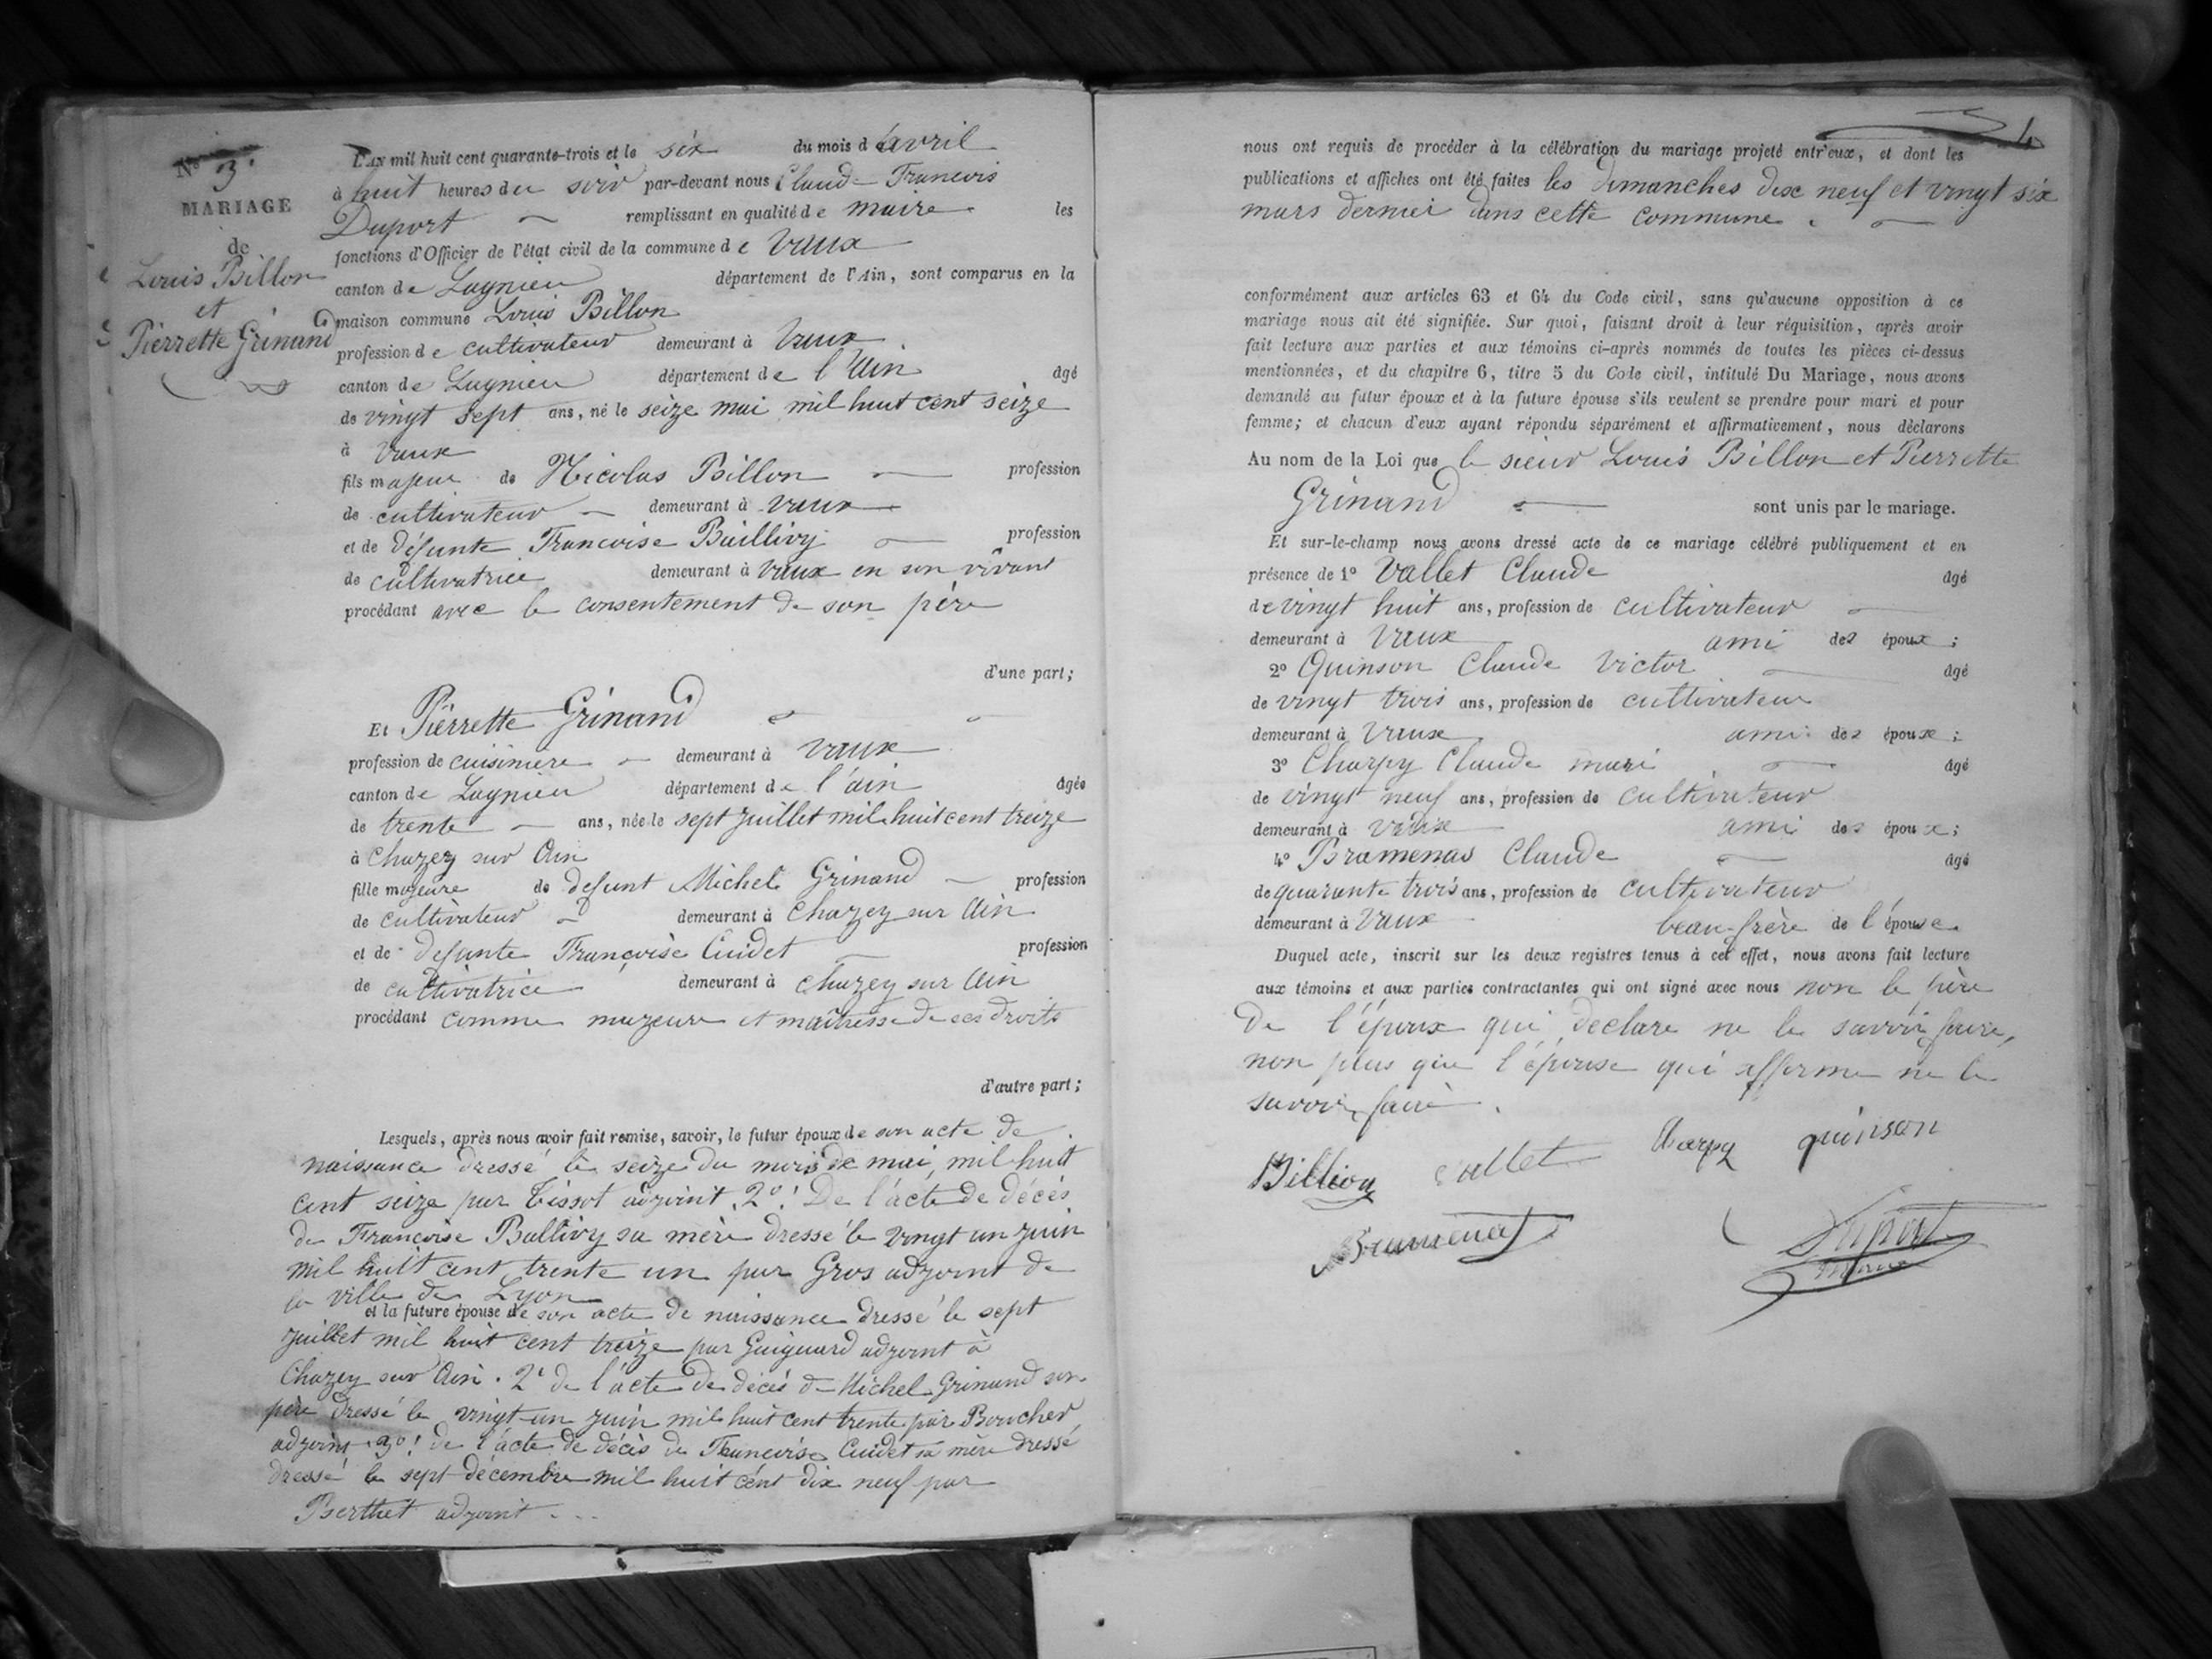 N° 3.
MARIAGE
de
Louis Billon
et
Pierrette Grinand
L'AN mil huit cent quarante-trois et le six du mois d'avril
à huit heures du soir par-devant nous Claude François
Duport remplissant en qualité de maire les
fonctions d'Officier de l'état civil de la commune de Vaux
canton de Lagnieu département de l'Ain, sont comparus en la
maison commune Louis Billon
profession de cultivateur demeurant à Vaux
canton de Lagnieu département de l'Ain âgé
de vingt sept ans, né le seize mai mil huit cent seize
à Vaux
fils majeur de Nicolas Billon profession
de cultivateur demeurant à Vaux
et de défunte Francoise Baillivy profession
de cultivatrice demeurant à Vaux en son vivant
procédant avec le consentement de son père
d'une part;
Et Pierrette Grinand
profession de cuisinière demeurant à Vaux
canton de Lagnieu département de l'ain âgée
de trente ans, née le sept juillet mil huit cent treize
à Chazey sur Ain
fille majeure de defunt Michel Grinand profession
de cultivateur demeurant à Chazey sur Ain
et de defunte Françoise Cuidet profession
de cultivatrice demeurant à Chazey sur Ain
procédant comme mazeure et maitresse de ces droits
d'autre part;
Lesquels, après nous avoir fait remise, savoir, le futur époux de son acte de
naissance dressé le seize du mois de mai, mil huit
cent seize par Tissot adjoint 2° De l'acte de décès
de Francoise Ballivy sa mère dressé le vingt un juin
mil huit cent trente un par Gros adjoint de
la ville de Lyon
et la future épouse de son acte de naissance dressé le sept
juillet mil huit cent treize par Guiguard adjoint à
Chazey sur Ain. 2° de l'acte de décès de Michel Grinand son
père dressé le vingt-un juin mil huit cent trente par Boucher
adjoint 3° de l'acte de décès de Francoise Cuidet sa mère dressé
dressé le sept décembre mil huit cent dix neuf par
Berthet adjoint...
4
nous ont requis de procéder à la célébration du mariage projeté entr'eux, et dont les
publications et affiches ont été faites les dimanches dix neuf et vingt six
mars dernier dans cette commune.
conformément aux articles 63 et 64 du Code civil, sans qu'aucune opposition à ce
mariage nous ait été signifiée. Sur quoi, faisant droit à leur réquisition, après avoir
fait lecture aux parties et aux témoins ci-après nommés de toutes les pièces ci-dessus
mentionnées, et du chapitre 6, titre 5 du Code civil, intitulé Du Mariage, nous avons
demandé au futur époux et à la future épouse s'ils veulent se prendre pour mari et pour
femme; et chacun d'eux ayant répondu séparément et affirmativement, nous déclarons
Au nom de la Loi que le sieur Louis Billon et Pierrette
Grinand sont unis par le mariage.
Et sur-le-champ nous avons dressé acte de ce mariage célébré publiquement et en
présence de 1° Vallet Claude âgé
de vingt huit ans, profession de cultivateur
demeurant à Vaux ami des époux;
2° Quinson Claude Victor âgé
de vingt trois ans, profession de cultivateur
demeurant à Vaux ami des époux;
3° Charpy Claude mari âgé
de vingt neuf ans, profession de cultivateur
demeurant à Vaux ami des époux;
4° Bramenas Claude âgé
de quarante trois ans, profession de cultivateur
demeurant à Vaux beau-frère de l'épouse
Duquel acte, inscrit sur les deux registres tenus à cet effet, nous avons fait lecture
aux témoins et aux parties contractantes qui ont signé avec nous non le père
De l'époux qui declare ne le savoir faire,
non plus que l'épouse qui afferme ne le
savoir faire.
Billion Vallet Charpy quinson
Bramenas Duport
maire